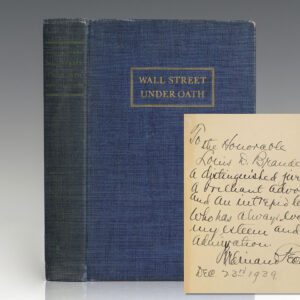 WALL STREET
UNDER OATH
To
the Honorable
Louis D. Brande
a distinguished jur
a brilliant advo
and an intrepid le
who has always, wo
my esteem and
admiration.
Dec. 23rd 1939.